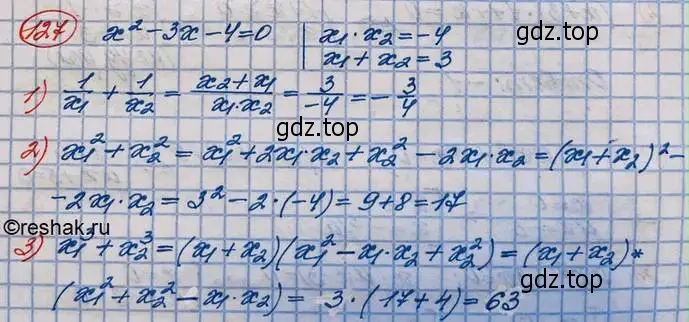 127 x² - 3x - 4 = 0 | x₁ · x₂ = -4
x₁ + x₂ = 3
gdz.top
1) 1/x₁ + 1/x₂ = (x₂ + x₁)/(x₁ · x₂) = 3/-4 = -3/4
gdz.top
2) x₁² + x₂² = x₁² + 2x₁ · x₂ + x₂² - 2x₁ · x₂ = (x₁ + x₂)² -
- 2x₁ · x₂ = 3² - 2 · (-4) = 9 + 8 = 17
©reshak.ru
gdz.top
3) x₁³ + x₂³ = (x₁ + x₂)(x₁² - x₁ · x₂ + x₂²) = (x₁ + x₂) *
gdz.top
(x₁² + x₂² - x₁ · x₂) = 3 · (17 + 4) = 63